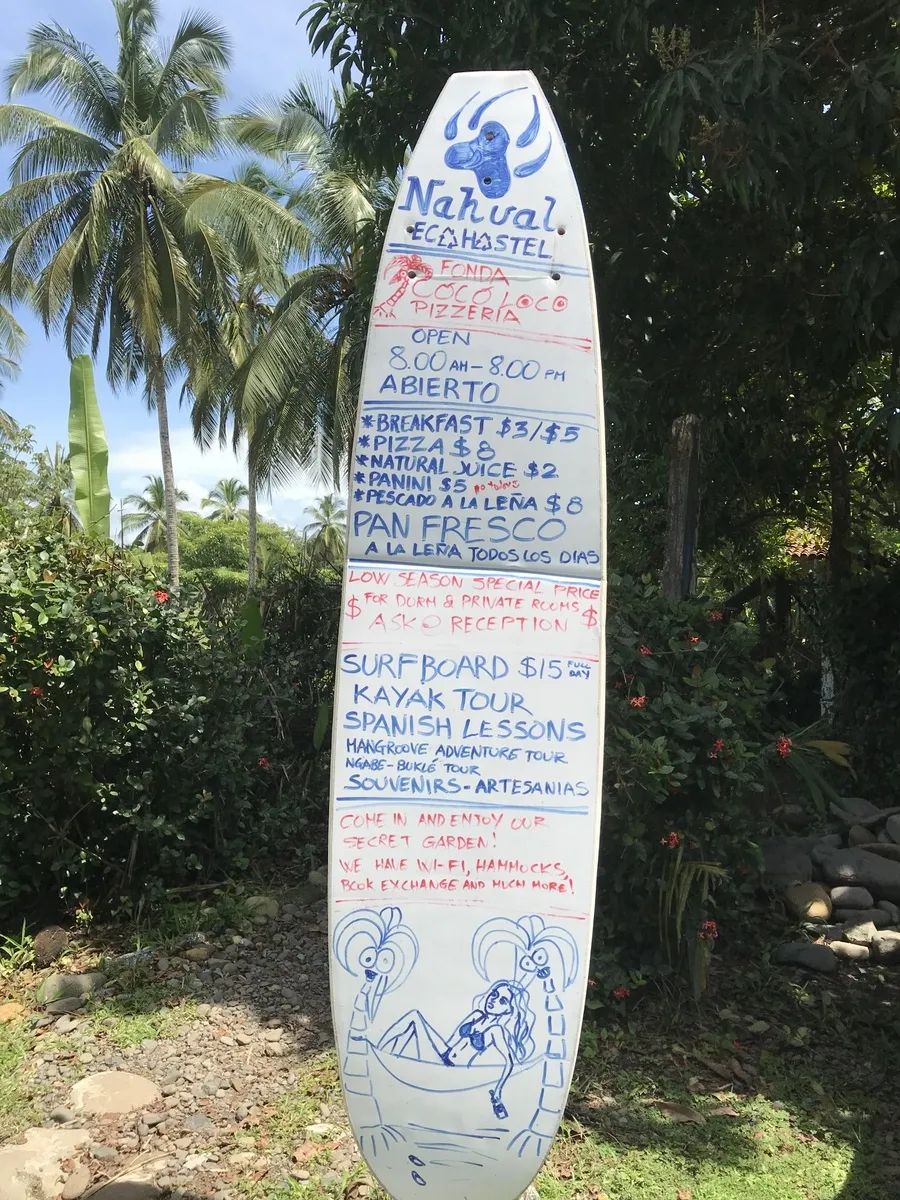 Nahual
ECOHOSTEL
FONDA
COCO LOCO
PIZZERIA
OPEN
8.00 AM - 8.00 PM
ABIERTO
*BREAKFAST $3/$5
*PIZZA $8
*NATURAL JUICE $2
*PANINI $5
*PESCADO A LA LEÑA $8
PAN FRESCO
A LA LEÑA TODOS LOS DIAS
LOW SEASON SPECIAL PRICE
$ FOR DORM & PRIVATE ROOMS $
ASK @ RECEPTION
SURFBOARD $15 FULL DAY
KAYAK TOUR
SPANISH LESSONS
MANGROOVE ADVENTURE TOUR
NGABE-BUKLÉ TOUR
SOUVENIRS - ARTESANIAS
COME IN AND ENJOY OUR
SECRET GARDEN!
WE HAVE WI-FI, HAMMOCKS,
BOOK EXCHANGE AND MUCH MORE!